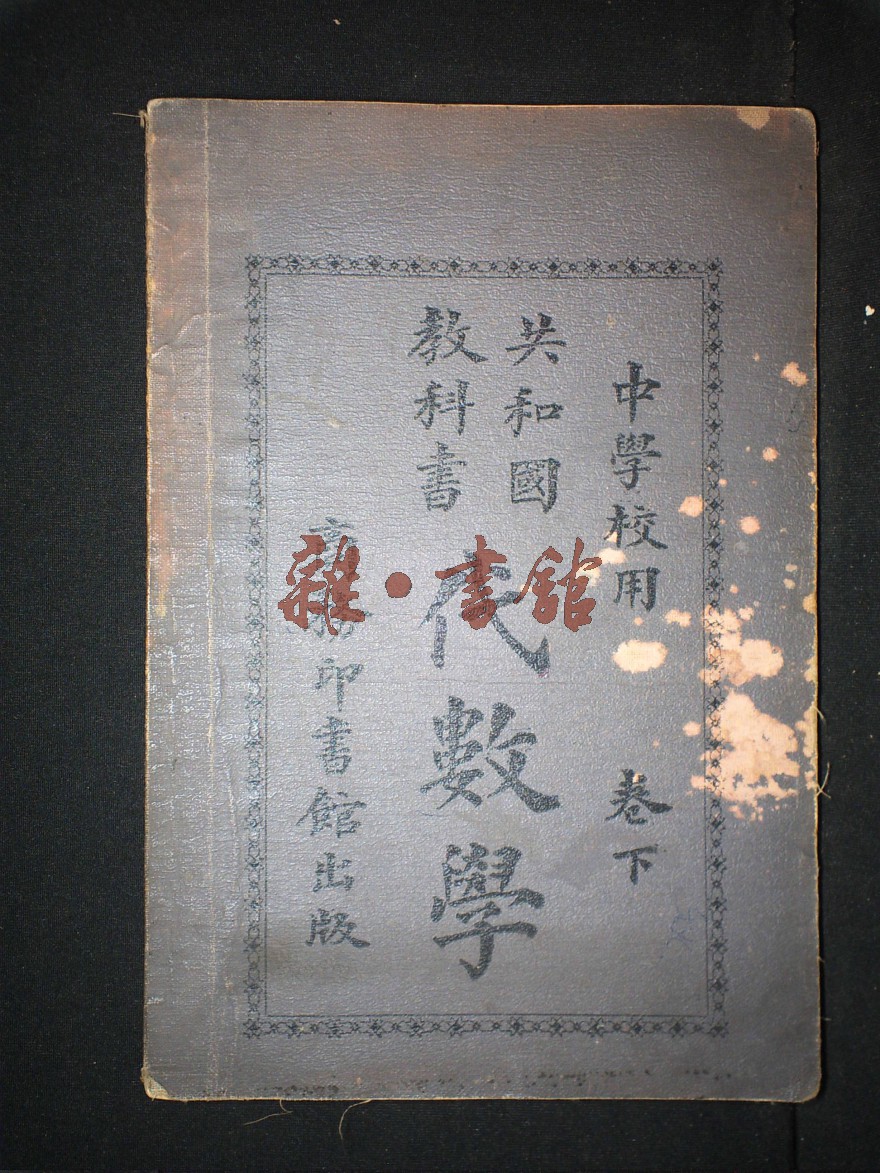 中學校用 卷下
共和國
教科書
代數學
商務印書館出版
雜·書館